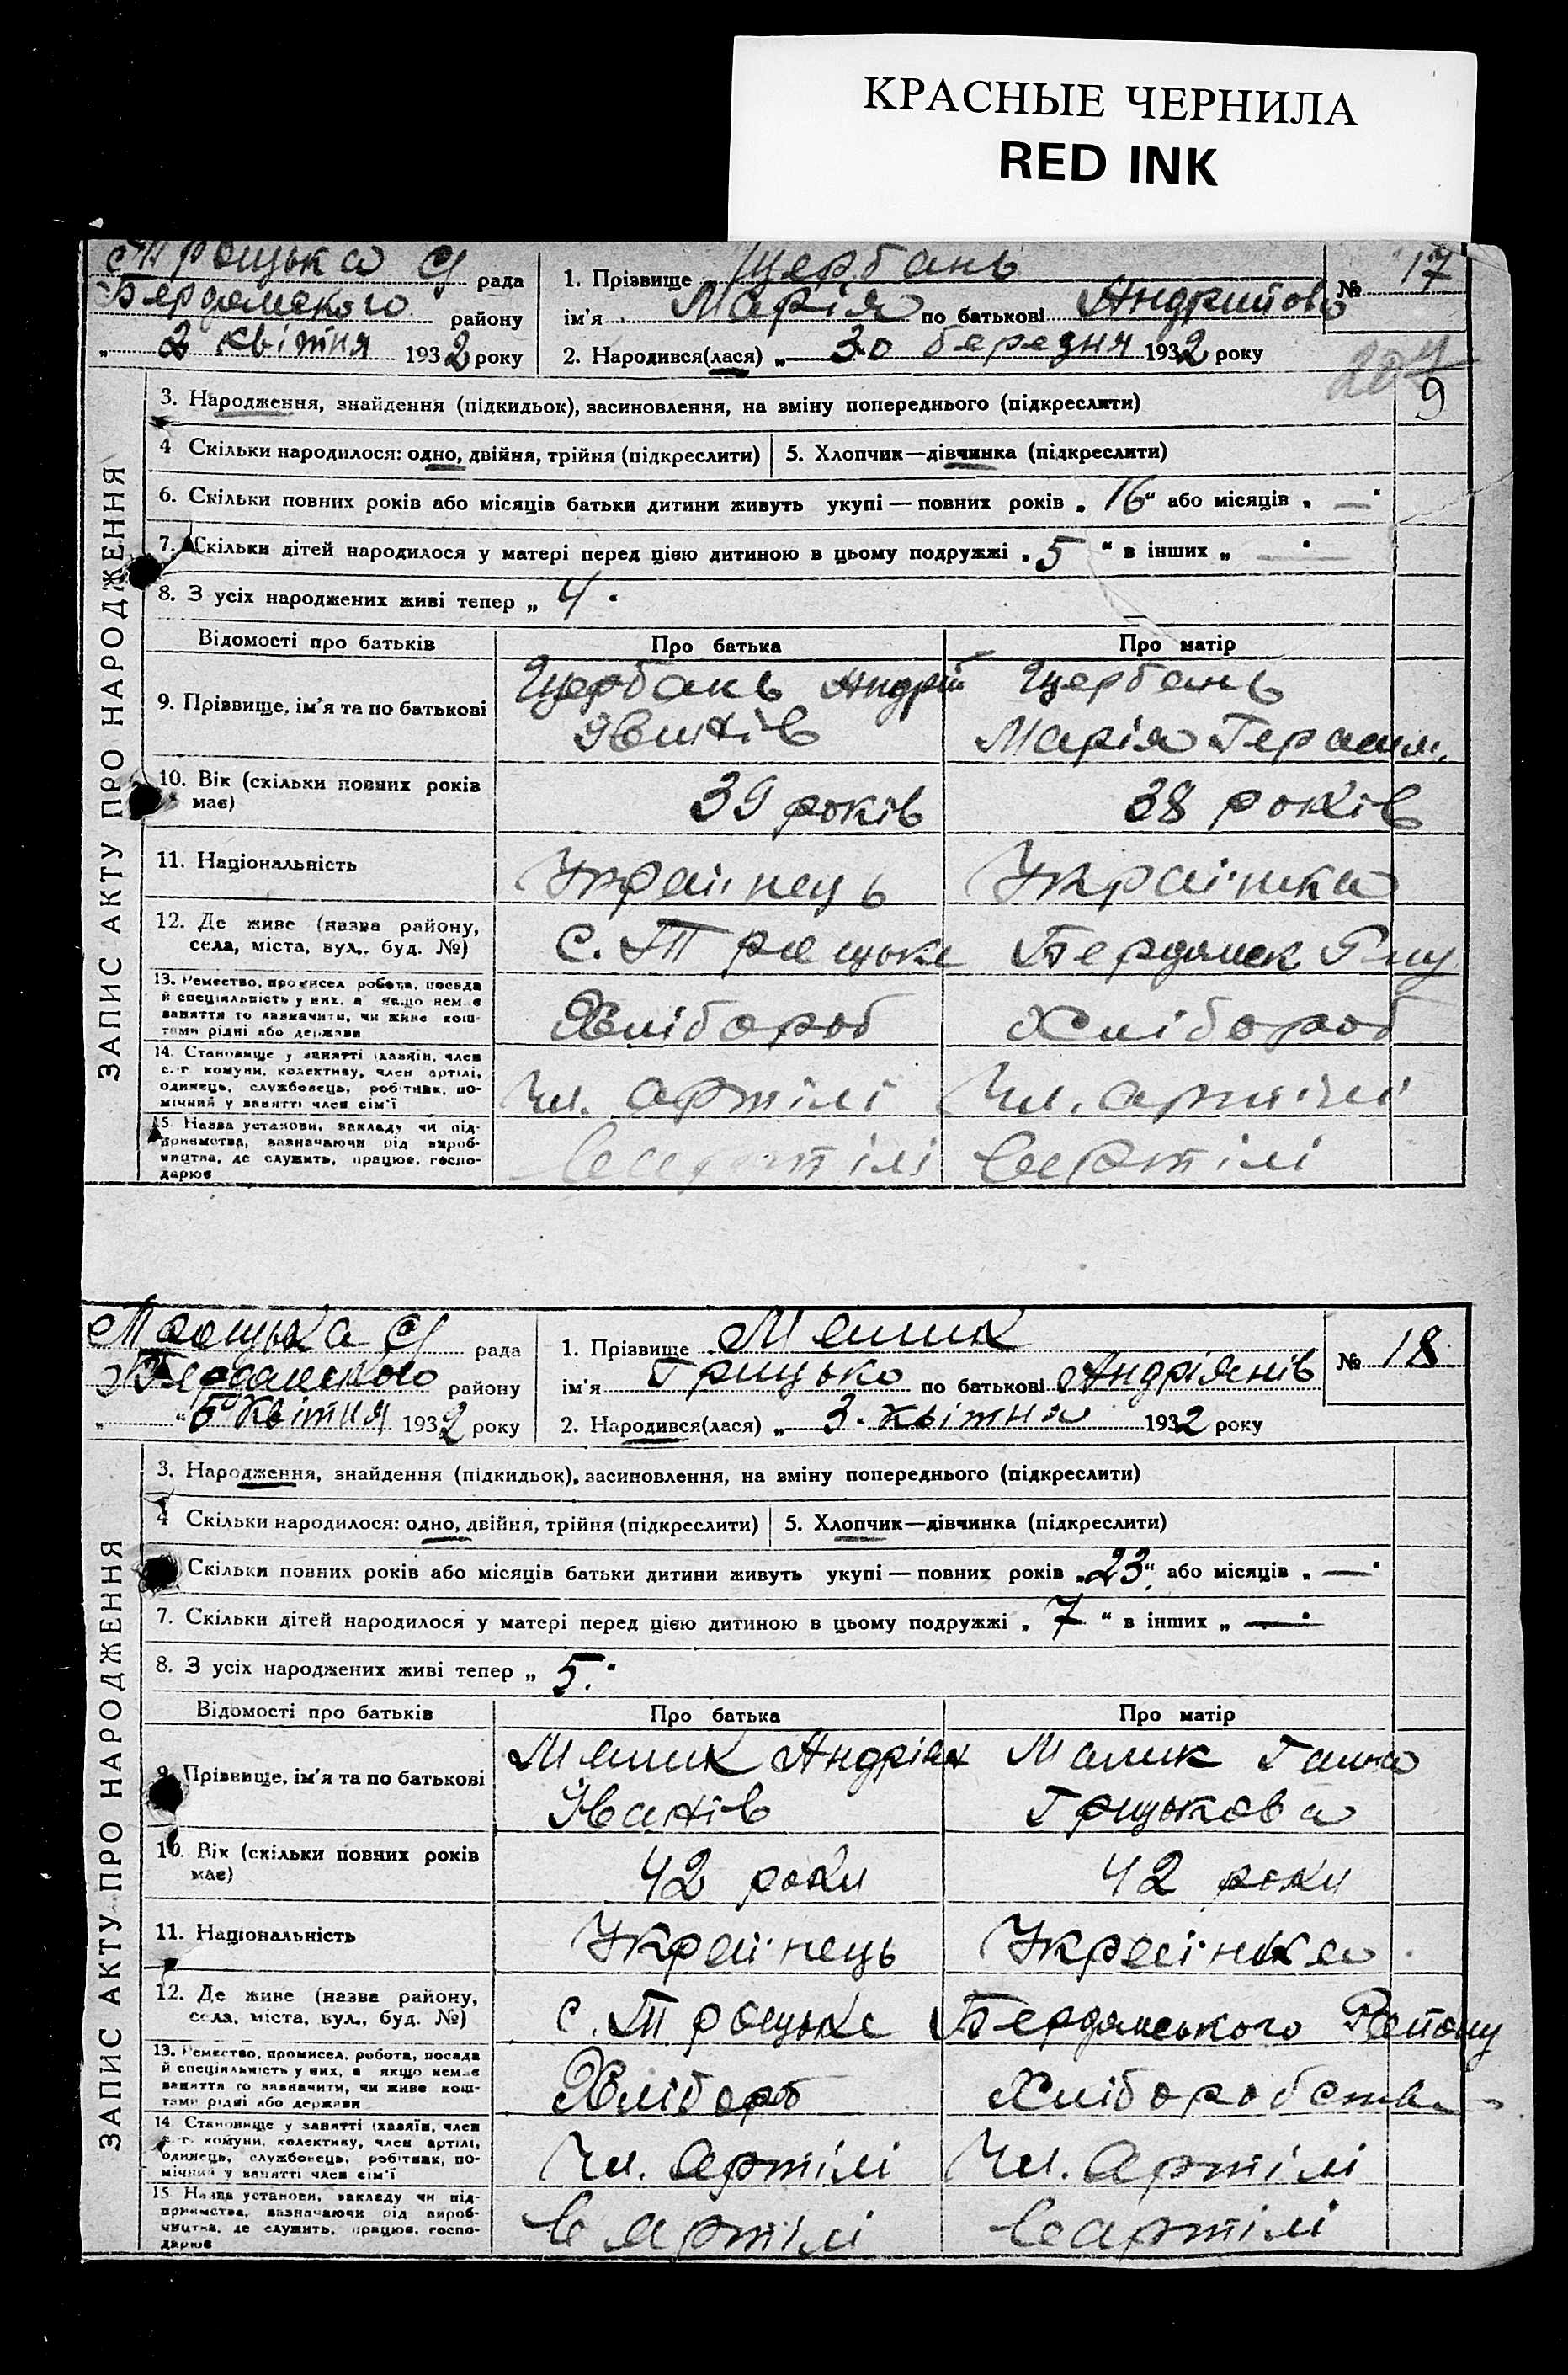 КРАСНЫЕ ЧЕРНИЛА
RED INK
Троцька С/ рада
Бердянського району
„ 2 квітня 1932 року
1. Прізвище Щербань
ім'я Марія по батькові Андріївова
№ 17
2. Народився(лася) „ 30 березня 1932 року
9
3. Народження, знайдення (підкидьок), засиновлення, на зміну попереднього (підкреслити)
4 Скільки народилося: одно, двійня, трійня (підкреслити) 5. Хлопчик—дівчинка (підкреслити)
6. Скільки повних років або місяців батьки дитини живуть укупі — повних років „ 16 “ або місяців „ — “
7. Скільки дітей народилося у матері перед цією дитиною в цьому подружжі „ 5 “ в інших „ — “
8. З усіх народжених живі тепер „ 4 “
ЗАПИС АКТУ ПРО НАРОДЖЕННЯ
Відомості про батьків Про батька Про матір
9. Прізвище, ім'я та по батькові Щербань Андрій Щербань
Іванів Марія Герасим.
10. Вік (скільки повних років має) 39 років 38 років
11. Національність Українець Українка
12. Де живе (назва району, села, міста, вул., буд. №) с. Троцьке Бердянск Р-ну
13. Ремество, промисел, робота, посада й спеціяльність у них, а якщо немає заняття то зазначити, чи живе коштами рідні або держави Хлібороб Хлібороб
14. Становище у занятті (хазяїн, член с.-г. комуни, колективу, член артілі, одинець, службовець, робітник, помічний у занятті член сім'ї Чл. артілі Чл. артілі
15. Назва установи, закладу чи підприємства, зазначаючи рід виробництва, де служить, працює, господарює В артілі В артілі
Троцька С/ рада
Бердянського району
„ 5 “ квітня 1932 року
1. Прізвище Малик
ім'я Грицько по батькові Андріянів
№ 18
2. Народився(лася) „ 3. квітня 1932 року
3. Народження, знайдення (підкидьок), засиновлення, на зміну попереднього (підкреслити)
4 Скільки народилося: одно, двійня, трійня (підкреслити) 5. Хлопчик—дівчинка (підкреслити)
Скільки повних років або місяців батьки дитини живуть укупі — повних років „ 23 “ або місяців „ — “
7. Скільки дітей народилося у матері перед цією дитиною в цьому подружжі „ 7 “ в інших „ — “
8. З усіх народжених живі тепер „ 5. “
ЗАПИС АКТУ ПРО НАРОДЖЕННЯ
Відомості про батьків Про батька Про матір
9. Прізвище, ім'я та по батькові Малик Андріян Малик Ганна
Іванів Грицькова
10. Вік (скільки повних років має) 42 роки 42 роки
11. Національність Українець Українка
12. Де живе (назва району, села, міста, вул., буд. №) с. Троцьке Бердянського Району
13. Ремество, промисел, робота, посада й спеціяльність у них, а якщо немає заняття то зазначити, чи живе коштами рідні або держави Хлібороб Хліборобство
14. Становище у занятті (хазяїн, член с.-г. комуни, колективу, член артілі, одинець, службовець, робітник, помічний у занятті член сім'ї Чл. артілі Чл. артілі
15. Назва установи, закладу чи підприємства, зазначаючи рід виробництва, де служить, працює, господарює В артілі В артілі